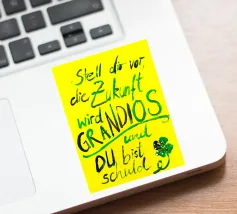 Stell dir vor,
die Zukunft
wird
GRANDIOS
und
DU bist
schuld